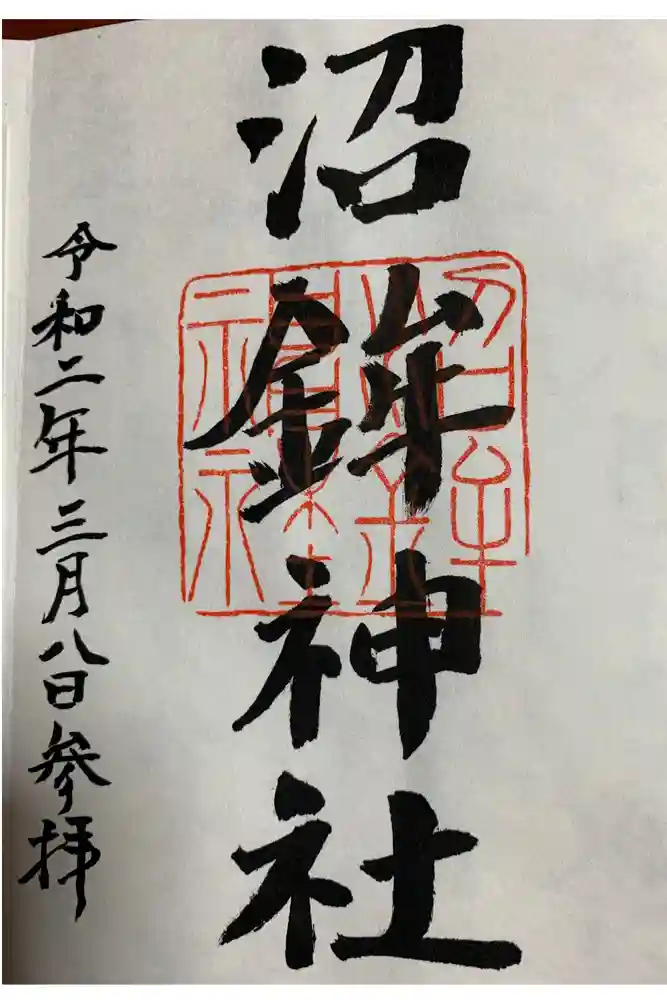 沼鉾神社
令和二年三月八日参拝